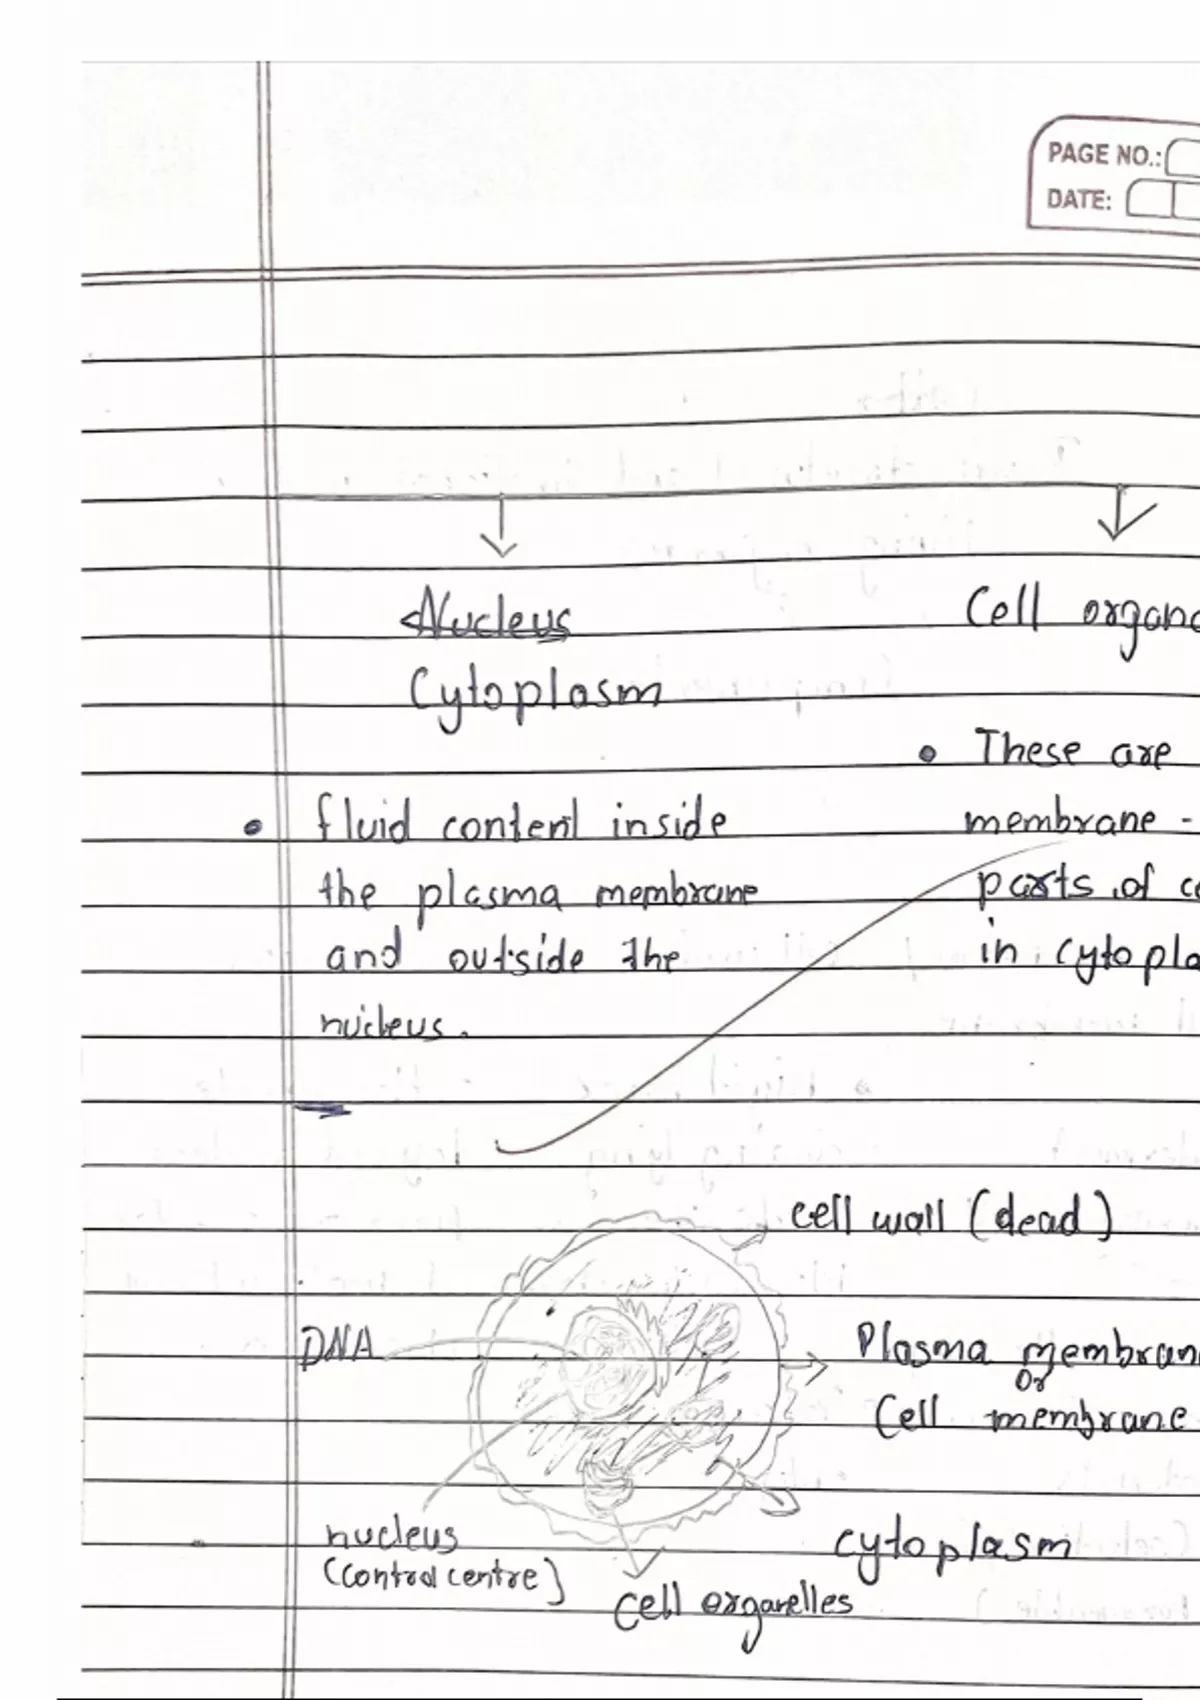 PAGE NO.:
DATE:
Nucleus
Cytoplasm
fluid content inside
the plasma membrane
and outside the
nucleus.
Cell
These are
membrane -
parts of
in
cell wall (dead)
DNA
Plasma
Or
Cell membrane
nucleus
(Control centre)
cytoplasm
Cell organelles